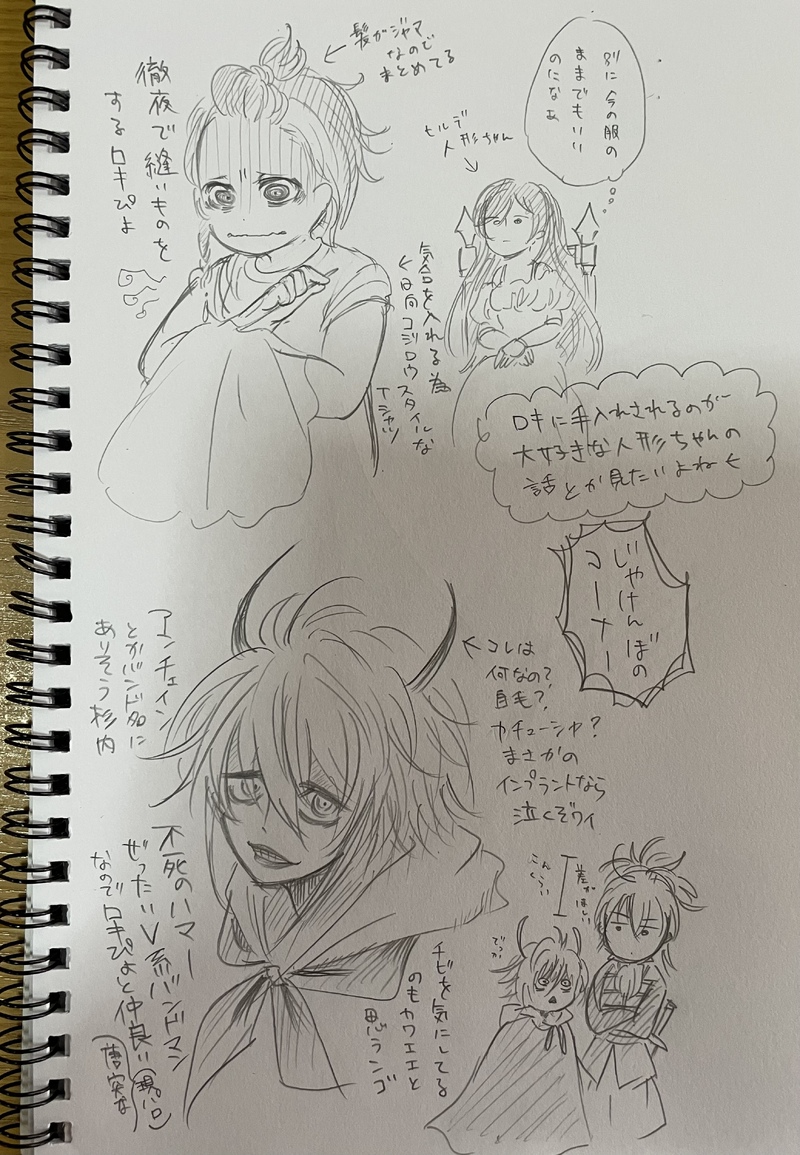 別に今の服の
ままでもいい
のになぁ
髪がジャマ
なので
まとめてる
ヒルデ
人形ちゃん
徹夜で縫いものを
するロキぴよ
気合を入れる為
日向コジロウスタイルな
Tシャツ
ロキに手入れされるのが
大好きな人形ちゃんの
話とか見たいよね
じゃけんぼの
コーナー
コレは
何なの?
自毛?
カチューシャ?
まさかの
インプラントなら
泣くぞワイ
アンチェイン
とかバンド名に
ありそう杉内
不死のハマー
ぜったいV系バンドマン
なのでロキぴよと仲良し
チビを気にしてる
のもカワエエと
思ランゴ
差がほしい
こんくらい
でっか